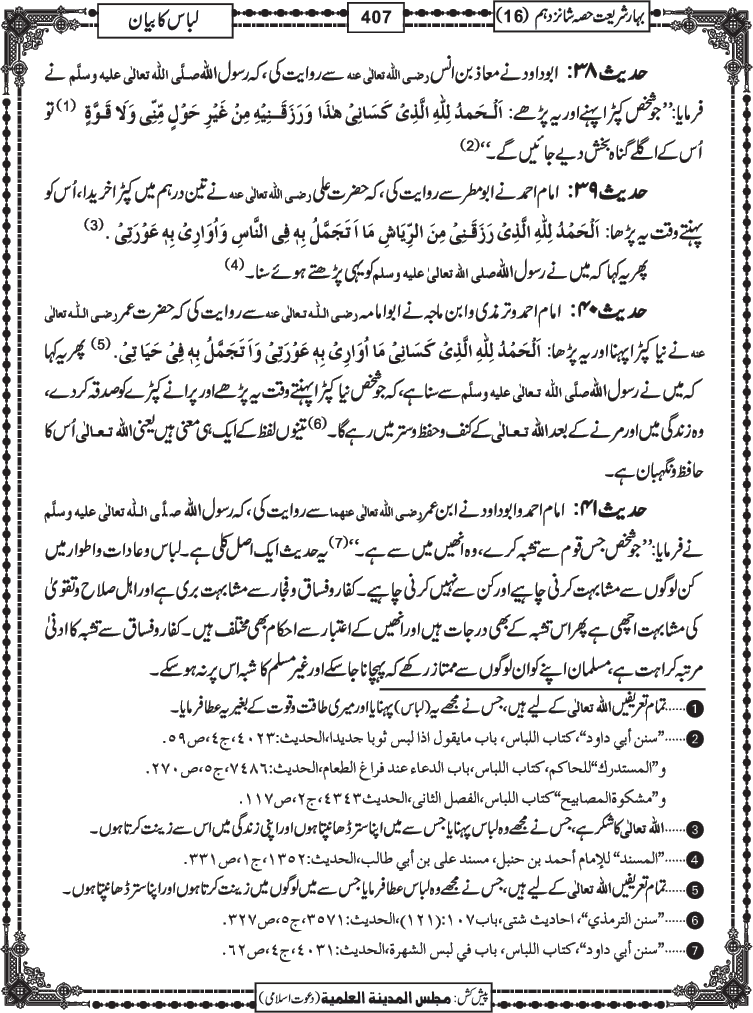 بہار شریعت حصہ شانزدہم (16)
407
لباس کا بیان
حدیث ۳۸: ابو داود نے معاذ بن انس رضی اللہ تعالٰی عنہ سے روایت کی، کہ رسول اللہ صلَّی اللہ تعالٰی علیہ وسلَّم نے
فرمایا: ’’جو شخص کپڑا پہنے اور یہ پڑھے: اَلْـحَمدُ لِلّٰهِ الَّذِیْ كَسَانِیْ هٰذَا وَرَزَقَـنِيْهِ مِنْ غَيْرِ حَوْلٍ مِّنِّی وَلَا قُـوَّةٍ (1) تو
اُس کے اگلے گناہ بخش دیے جائیں گے۔‘‘ (2)
حدیث ۳۹: امام احمد نے ابو مطر سے روایت کی، کہ حضرت علی رضی اللہ تعالٰی عنہ نے تین درہم میں کپڑا خریدا، اُس کو
پہنتے وقت یہ پڑھا: اَلْحَمْدُ لِلّٰهِ الَّذِیْ رَزَقَـنِیْ مِنَ الرِّيَاشِ مَا اَتَجَمَّلُ بِهٖ فِی النَّاسِ وَاُوَارِیْ بِهٖ عَوْرَتِیْ . (3)
پھر یہ کہا کہ میں نے رسول اللہ صلی اللہ تعالٰی علیہ وسلم کو یہی پڑھتے ہوئے سنا۔ (4)
حدیث ۴۰: امام احمد و ترمذی و ابن ماجہ نے ابو امامہ رضی اللہ تعالٰی عنہ سے روایت کی کہ حضرت عمر رضی اللہ تعالٰی
عنہ نے نیا کپڑا پہنا اور یہ پڑھا: اَلْحَمْدُ لِلّٰهِ الَّذِیْ كَسَانِیْ مَا اُوَارِیْ بِهٖ عَوْرَتِیْ وَاَتَجَمَّلُ بِهٖ فِیْ حَيَاتِیْ. (5) پھر یہ کہا
کہ میں نے رسول اللہ صلَّی اللہ تعالٰی علیہ وسلَّم سے سنا ہے، کہ جو شخص نیا کپڑا پہنتے وقت یہ پڑھے اور پرانے کپڑے کو صدقہ کر دے،
وہ زندگی میں اور مرنے کے بعد اللہ تعالٰی کے کنف و حفظ و ستر میں رہے گا۔ (6) تینوں لفظ کے ایک ہی معنی ہیں یعنی اللہ تعالٰی اُس کا
حافظ و نگہبان ہے۔
حدیث ۴۱: امام احمد و ابو داود نے ابن عمر رضی اللہ تعالٰی عنھما سے روایت کی، کہ رسول اللہ صلَّی اللہ تعالٰی علیہ وسلَّم
نے فرمایا: ’’جو شخص جس قوم سے تشبہ کرے، وہ انھیں میں سے ہے۔‘‘ (7) یہ حدیث ایک اصل کلی ہے۔ لباس و عادات و اطوار میں
کن لوگوں سے مشابہت کرنی چاہیے اور کن سے نہیں کرنی چاہیے۔ کفار و فساق و فجار سے مشابہت بری ہے اور اہل صلاح و تقویٰ
کی مشابہت اچھی ہے پھر اس تشبہ کے بھی درجات ہیں اور انھیں کے اعتبار سے احکام بھی مختلف ہیں۔ کفار و فساق سے تشبہ کا ادنیٰ
مرتبہ کراہت ہے، مسلمان اپنے کو ان لوگوں سے ممتاز رکھے کہ پہچانا جا سکے اور غیر مسلم کا شبہ اس پر نہ ہو سکے۔
1 ......تمام تعریفیں اللہ تعالٰی کے لیے ہیں، جس نے مجھے یہ (لباس) پہنایا اور میری طاقت و قوت کے بغیر یہ عطا فرمایا۔
2 ......”سنن أبي داود“، کتاب اللباس، باب مایقول اذا لبس ثوبا جدیدا، الحدیث: ۴۰۲۳، ج۴، ص۵۹.
و ”المستدرك“ للحاکم، کتاب اللباس، باب الدعاء عند فراغ الطعام، الحدیث: ۷۴۸۶، ج۵، ص۲۷۰.
و ”مشکوة المصابیح“ کتاب اللباس، الفصل الثانی، الحدیث ۴۳۴۳، ج۲، ص۱۱۷.
3 ......اللہ تعالٰی کا شکر ہے، جس نے مجھے وہ لباس پہنایا جس سے میں اپنا ستر ڈھانپتا ہوں اور اپنی زندگی میں اس سے زینت کرتا ہوں۔
4 ......”المسند“ للإمام أحمد بن حنبل، مسند علی بن أبي طالب، الحدیث: ۱۳۵۲، ج۱، ص۳۳۱.
5 ......تمام تعریفیں اللہ تعالٰی کے لیے ہیں، جس نے مجھے وہ لباس عطا فرمایا جس سے میں لوگوں میں زینت کرتا ہوں اور اپنا ستر ڈھانپتا ہوں۔
6 ......”سنن الترمذي“، احادیث شتی، باب ۱۰۷: (۱۲۱)، الحدیث: ۳۵۷۱، ج۵، ص۳۲۷.
7 ......”سنن أبي داود“، کتاب اللباس، باب في لبس الشهرة، الحدیث: ۴۰۳۱، ج۴، ص۶۲.
پیش کش: مجلس المدینة العلمیة (دعوت اسلامی)